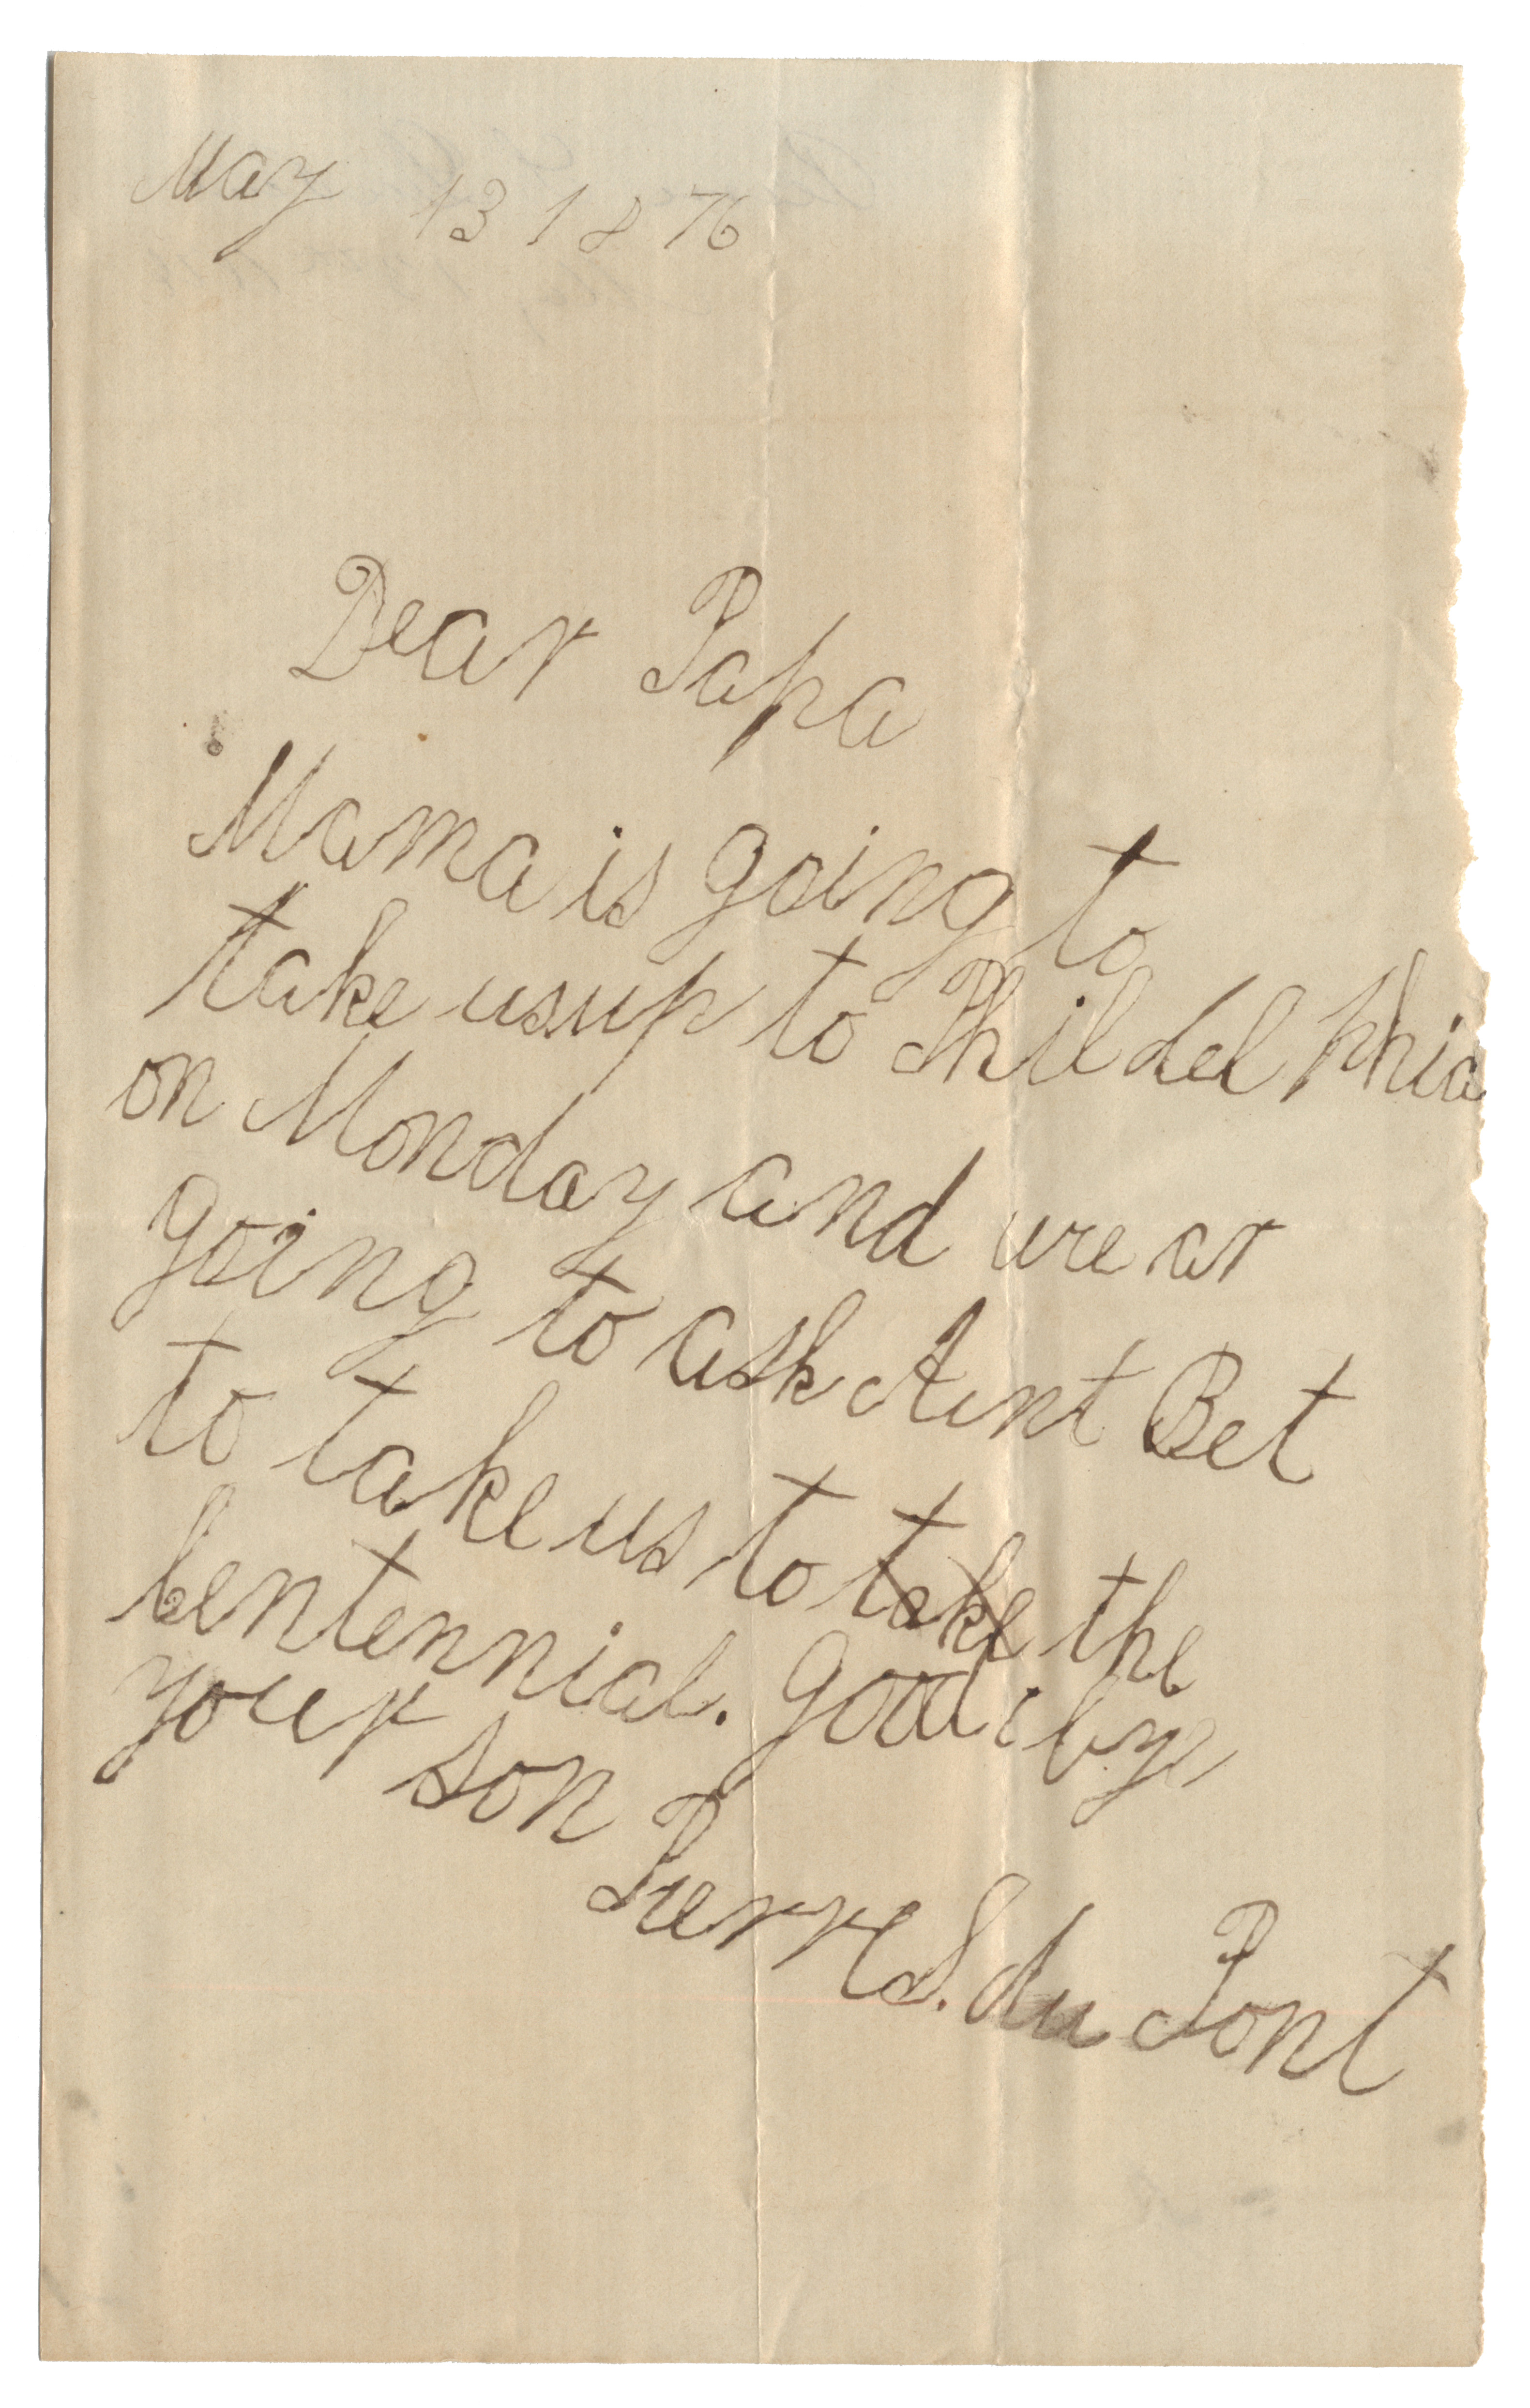 May 13 1876
Dear Papa
Mama is going to
take us up to Phildelphia
on Monday and we ar
going to ask Aunt Bet
to take us to take the
Centennial. good bye
your son
Pierre S. du Pont